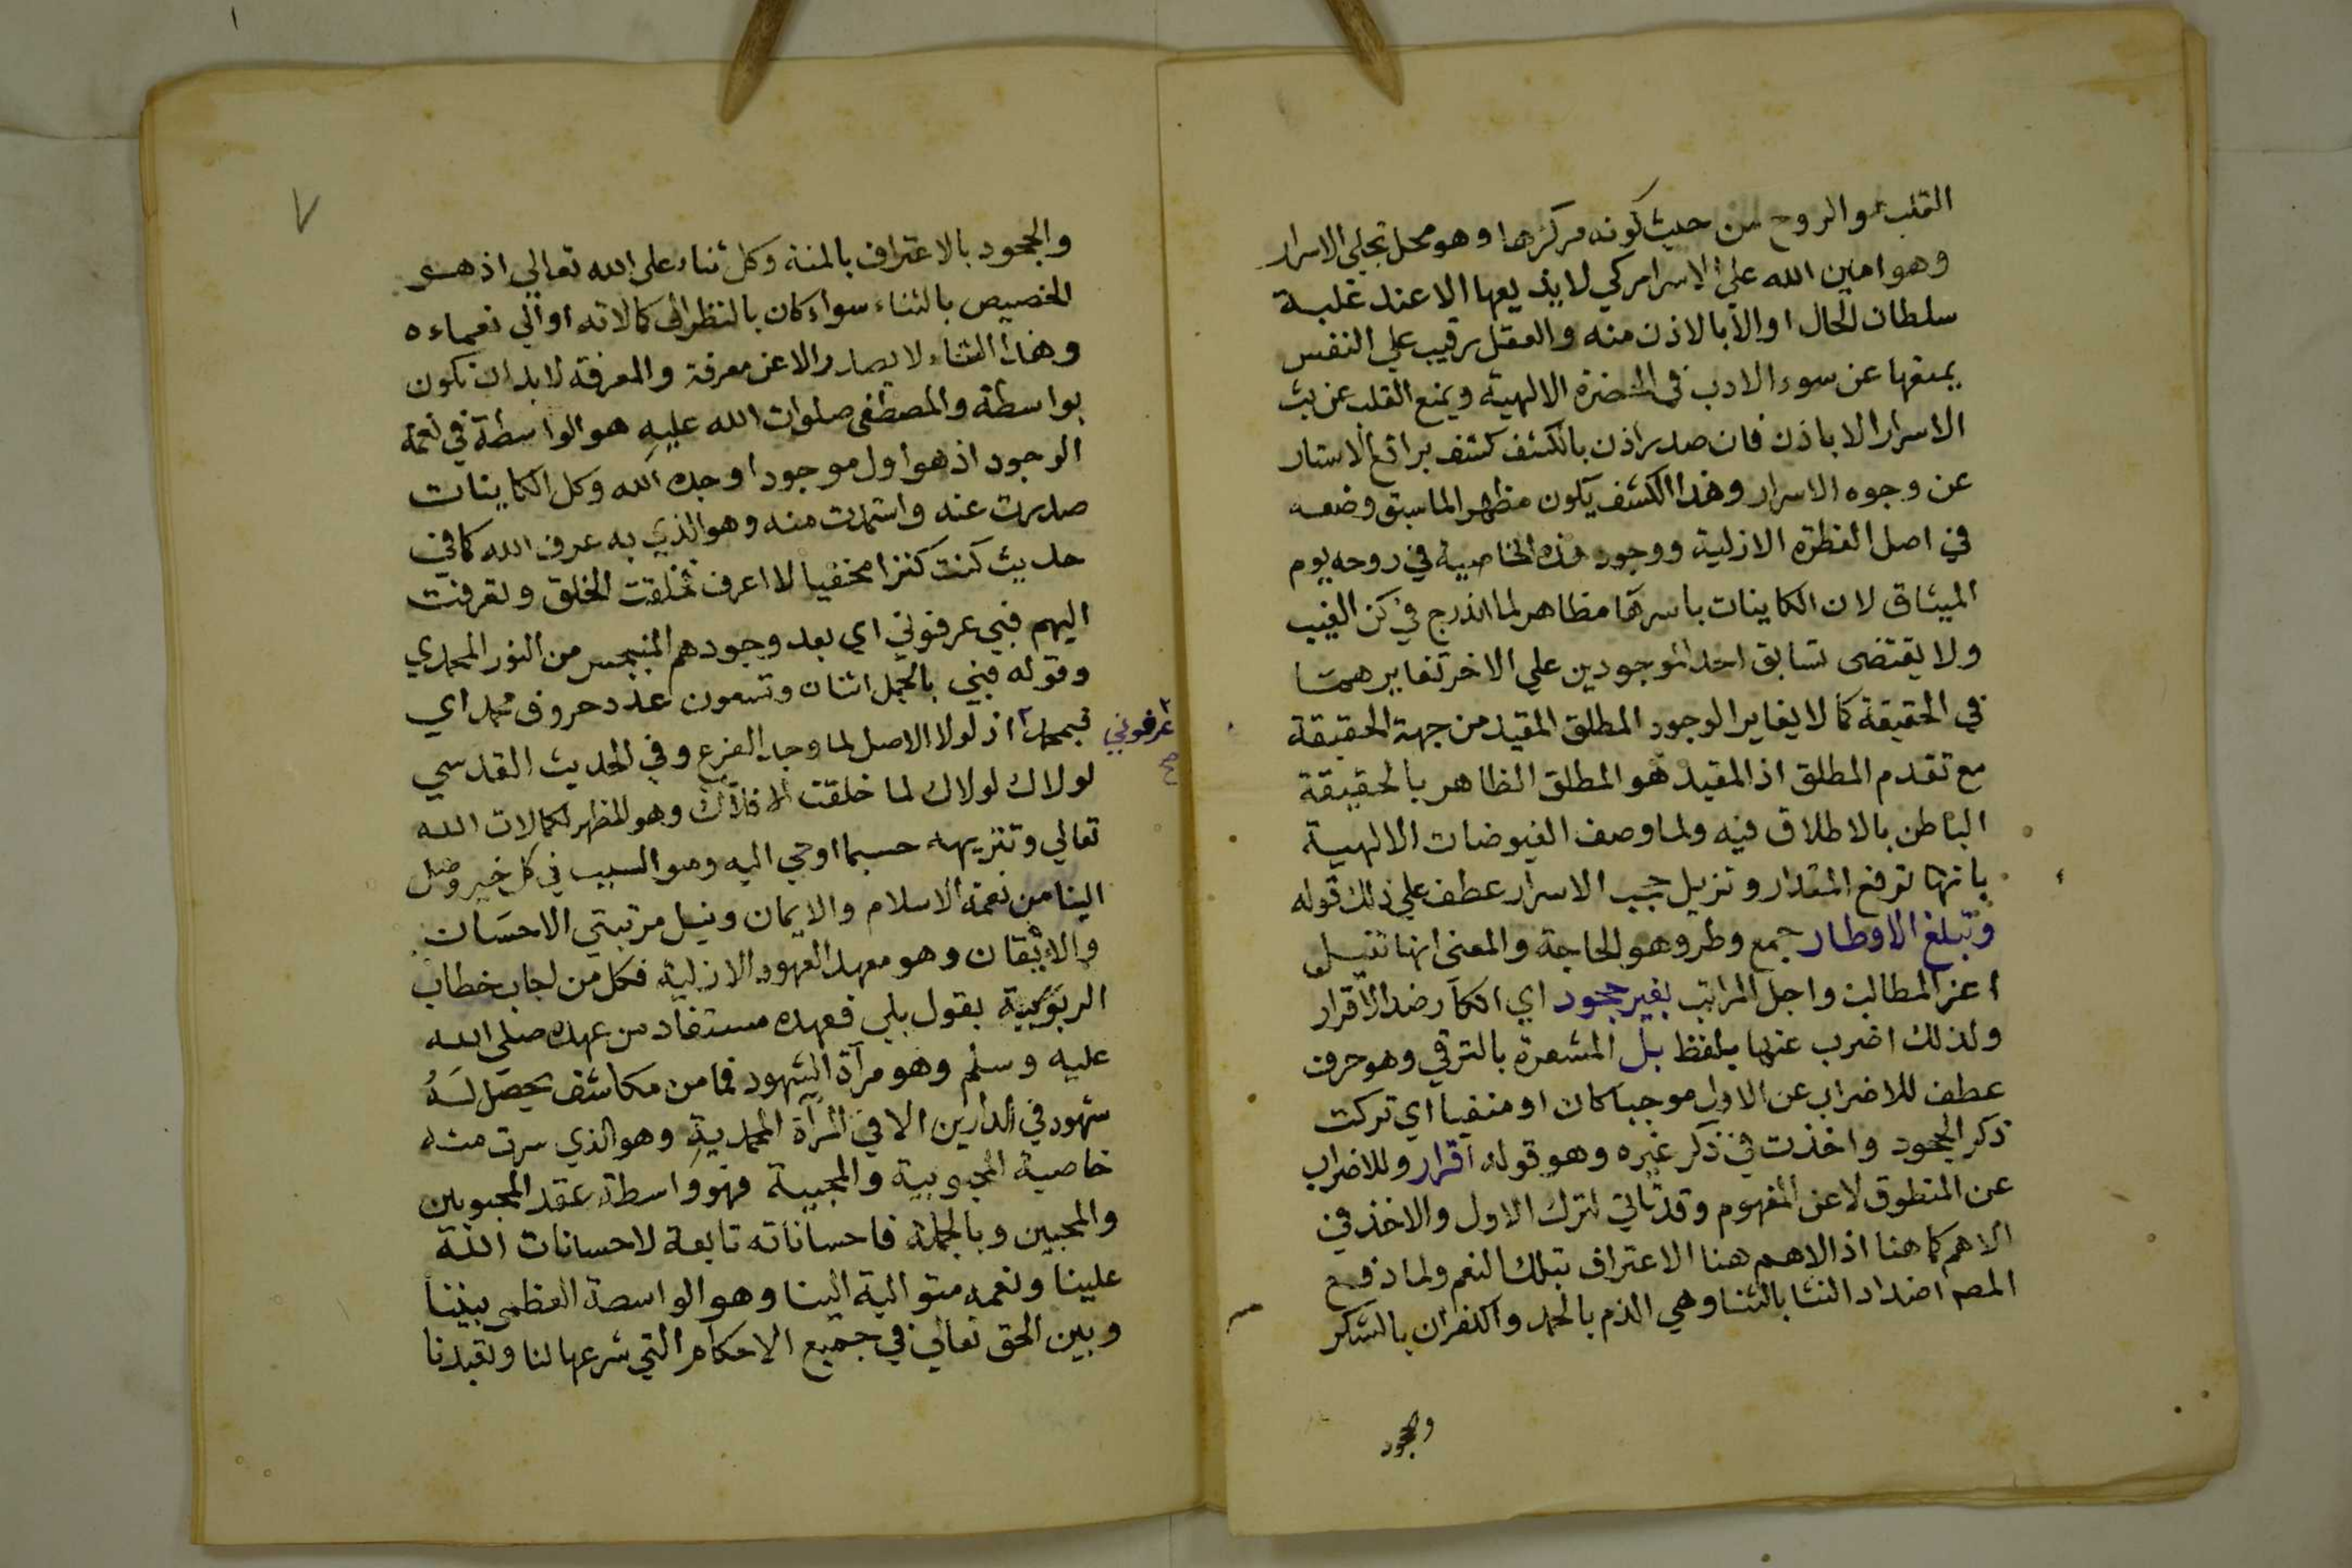 القلب والروح من حيث كونه مركزها وهو محل تجلي الاسرار
وهو امين الله على الاسرار كي لا يذيعها الا عند غلبة
سلطان الحال اوالا بالاذن منه والعقل رقيب علي النفس
يمنعها عن سوء الادب في الحضرة الالهية ويمنع القلب عن بث
الاسرار الا باذن فان صدر اذن بالكشف كشف براقع الاستار
عن وجوه الاسرار وهذا الكشف يكون مظهر الما سبق وضعه
في اصل الفطرة الازلية ووجود هذه الخاصية في روحه يوم
الميثاق لان الكاينات باسرها مظاهر لما اندرج في كن الغيب
ولا يقتضى تسابق احد الموجودين علي الاخر تغايرهما
في الحقيقة كما لا يغاير الوجود المطلق المقيد من جهة الحقيقة
مع تقدم المطلق اذ المقيد هو المطلق الظاهر بالحقيقة
الباطن بالاطلاق فيه ولما وصف الفيوضات الالهية
بانها ترفع المقدار وتزيل حجب الاسرار عطف علي ذلك قوله
وتبلغ الاوطار جمع وطر وهو الحاجة والمعنى انها تنيل
اعز المطالب واجل المراتب بغير جحود اي انكار ضد الاقرار
ولذلك اضرب عنها بلفظ بل المشعرة بالترقي وهو حرف
عطف للاضراب عن الاول موجبا كان او منفيا اي تركت
ذكر الجحود واخذت في ذكر غيره وهو قوله اقرار وللاضراب
عن المنطوق لا عن المفهوم وقد تاتي لترك الاول والاخذ في
الاهم كما هنا اذ الاهم هنا الاعتراف بتلك النعم ولما دفع
المصم اضداد الثنا بالثنا وهي الذم بالحمد والكفران بالشكر
والجحود
٧
والجحود بالاعتراف بالمنة وكل ثناء على الله تعالي اذ هو
الخصيص بالثناء سواء كان بالنظر الى كمالاته او الي نعماءه
وهذا الثناء لا يصدر الا عن معرفة والمعرفة لا بد ان تكون
بواسطة والمصطفى صلوات الله عليه هو الواسطة في نعمة
الوجود اذ هو اول موجود اوجده الله وكل الكاينات
صدرت عنه واستمدت منه وهو الذي به عرف الله كما في
حديث كنت كنزا مخفيا لا اعرف فخلقت الخلق وتعرفت
اليهم فبي عرفوني اي بعد وجودهم المنبجس من النور المحمدي
وقوله فبي بالجمل اثنان وتسعون عدد حروف محمد اي
فبمحمد اذ لولا الاصل لما وجد الفرع وفي الحديث القدسي
عرفوني
صح
لولاك لولاك لما خلقت الافلاك وهو المظهر لكمالات الله
تعالي وتنزيهه حسبما اوحي اليه وهو السبب في كل خير وصل
الينا من نعمة الاسلام والايمان ونيل مرتبتي الاحسان
والايقان وهو معهد العهود الازلية فكل من اجاب خطاب
الربوبية بقول بلي فعهده مستفاد من عهده صلى الله
عليه وسلم وهو مرآة الشهود فما من مكاشف يحصل له
شهود في الدارين الا في المرآة المحمدية وهو الذي سرت منه
خاصية المحبوبية والمحبية فهو واسطة عقد المحبوبين
والمحبين وبالجملة فاحساناته تابعة لاحسانات الله
علينا ونعمه متوالية الينا وهو الواسطة العظمى بيننا
وبين الحق تعالى في جميع الاحكام التي شرعها لنا وتعبدنا